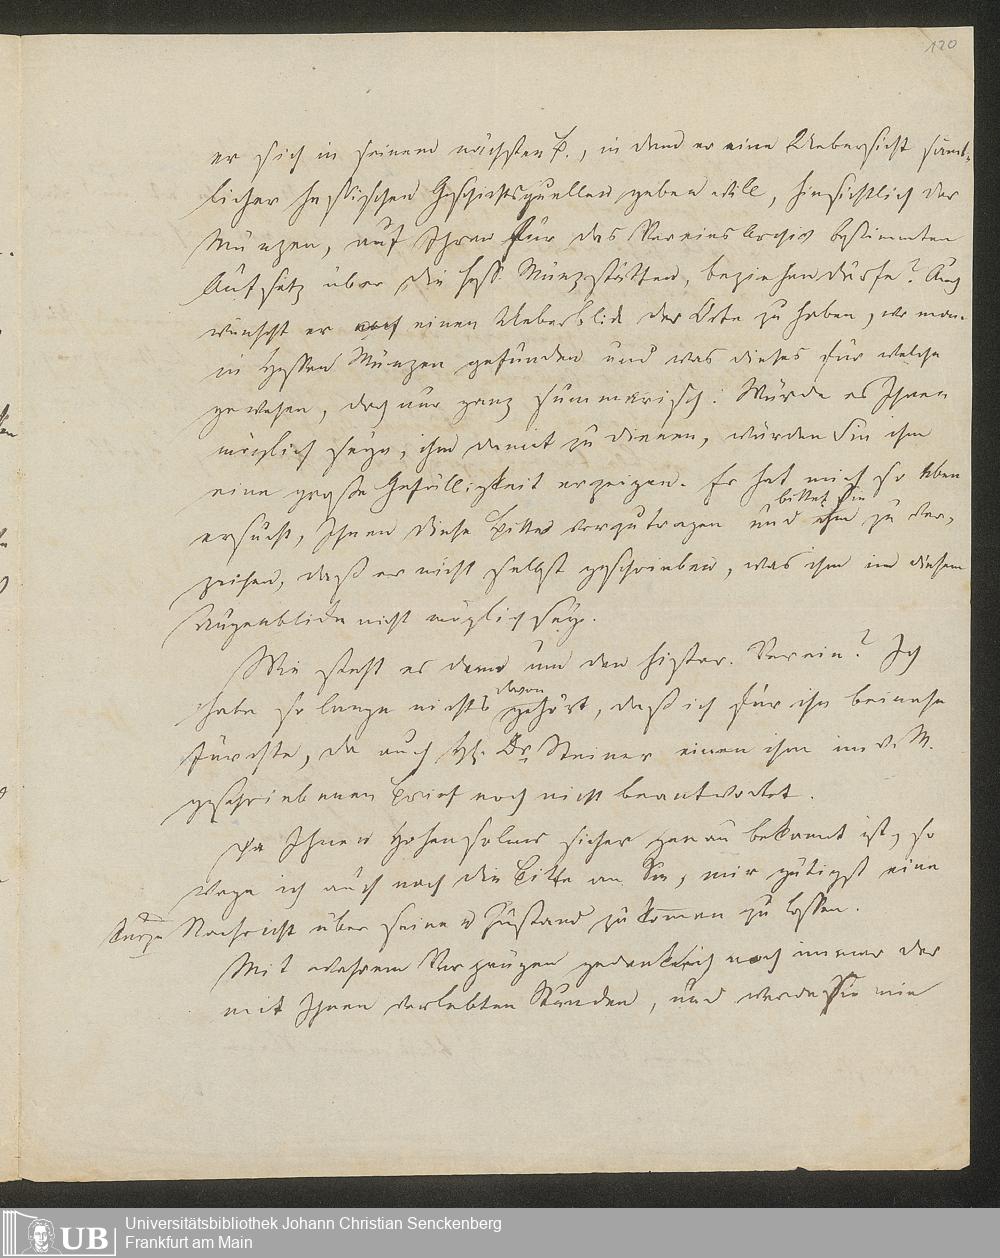 120
er sich in seinem nächsten P., in dem er eine Uebersicht sämt-
licher hessischen Geschichtsquellen geben will, hinsichtlich der
Münzen, auf Ihren für das Vereins Archiv bestimmten
Aufsatz über die hess. Münzstätten, beziehen dürfe? Auch
wünscht er noch einen Ueberblick der Orte zu haben, wo man
in Hessen Münzen gefunden und was dieses für welche
gewesen, doch nur ganz summarisch. Würde es Ihnen
möglich seyn, ihm damit zu dienen, würden Sie ihm
eine große Gefälligkeit erzeigen. Er hat mich so eben
bittet Sie
ersucht, Ihnen diese Bitte vorzutragen und ihm zu ver-
zeihen, daß er nicht selbst geschrieben, was ihm in diesem
Augenblicke nicht möglich sey.
Wie steht es denn um den histor. Verein? Ich
davon
habe so lange nichts gehört, daß ich für ihn beinahe
fürchte, da auch H. Dr Steiner einen ihm im v. M.
geschriebenen Brief noch nicht beantwortet.
Da Ihnen Hohensolms sicher genau bekannt ist, so
wage ich auch noch die Bitte an Sie, mir gütigst eine
kurze Nachricht über seinen Zustand zukommen zu lassen.
Mit wahrem Vergnügen gedenke ich noch immer der
mit Ihnen verlebten Stunden, und werde Sie nie
UB
Universitätsbibliothek Johann Christian Senckenberg
Frankfurt am Main